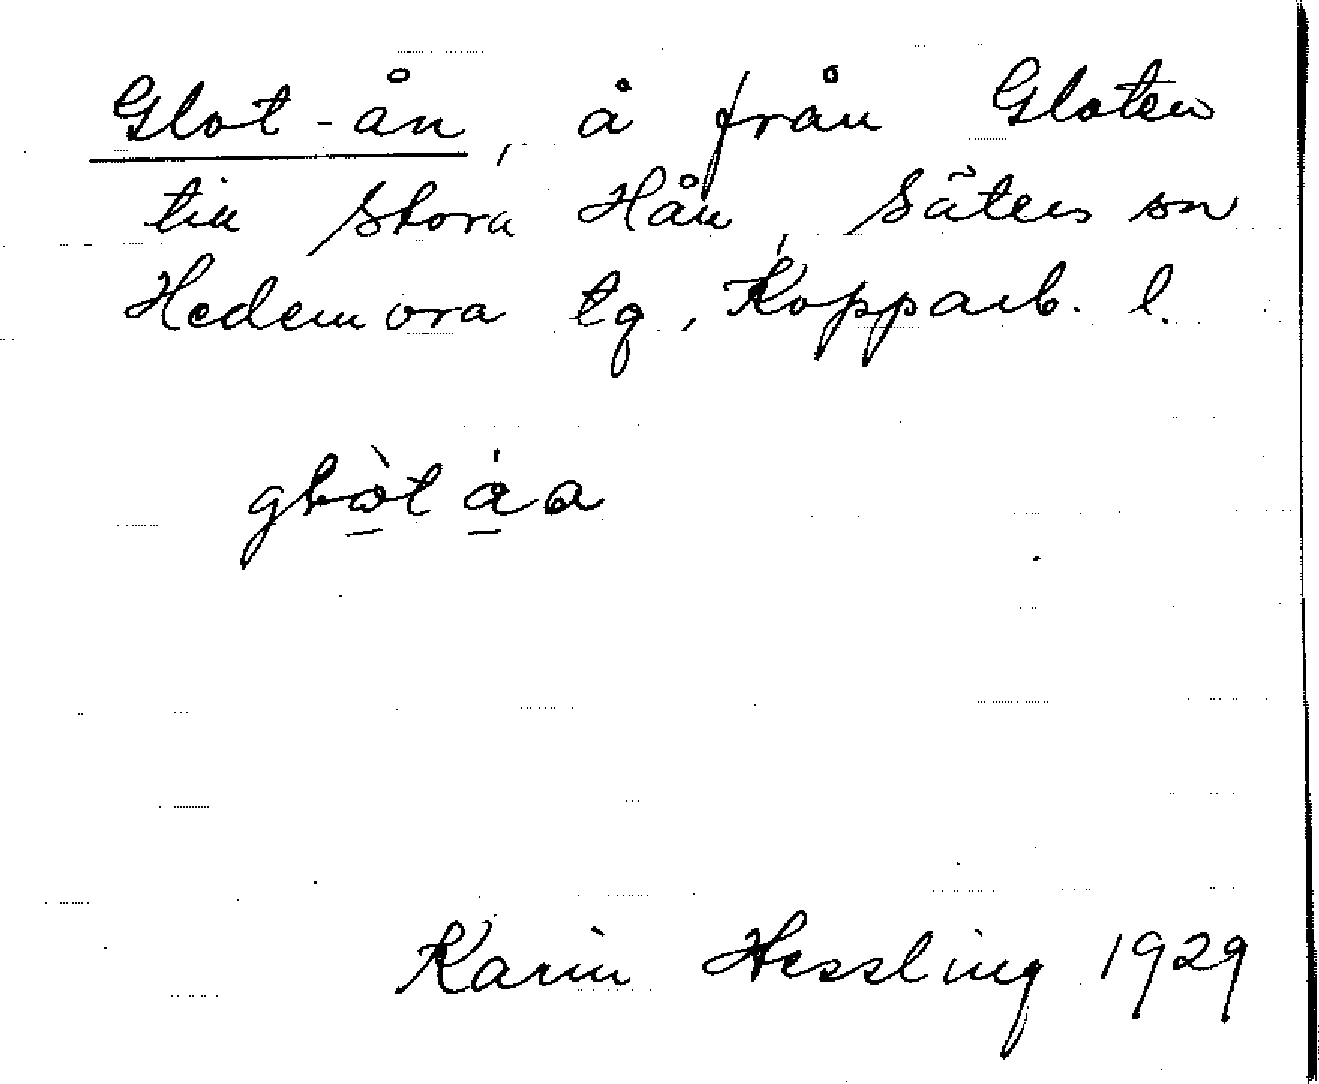 Glot-ån, å från Gloten
till Stora Hån, Säters sn
Hedemora tg, Kopparb. l.
Karin Hessling 1929